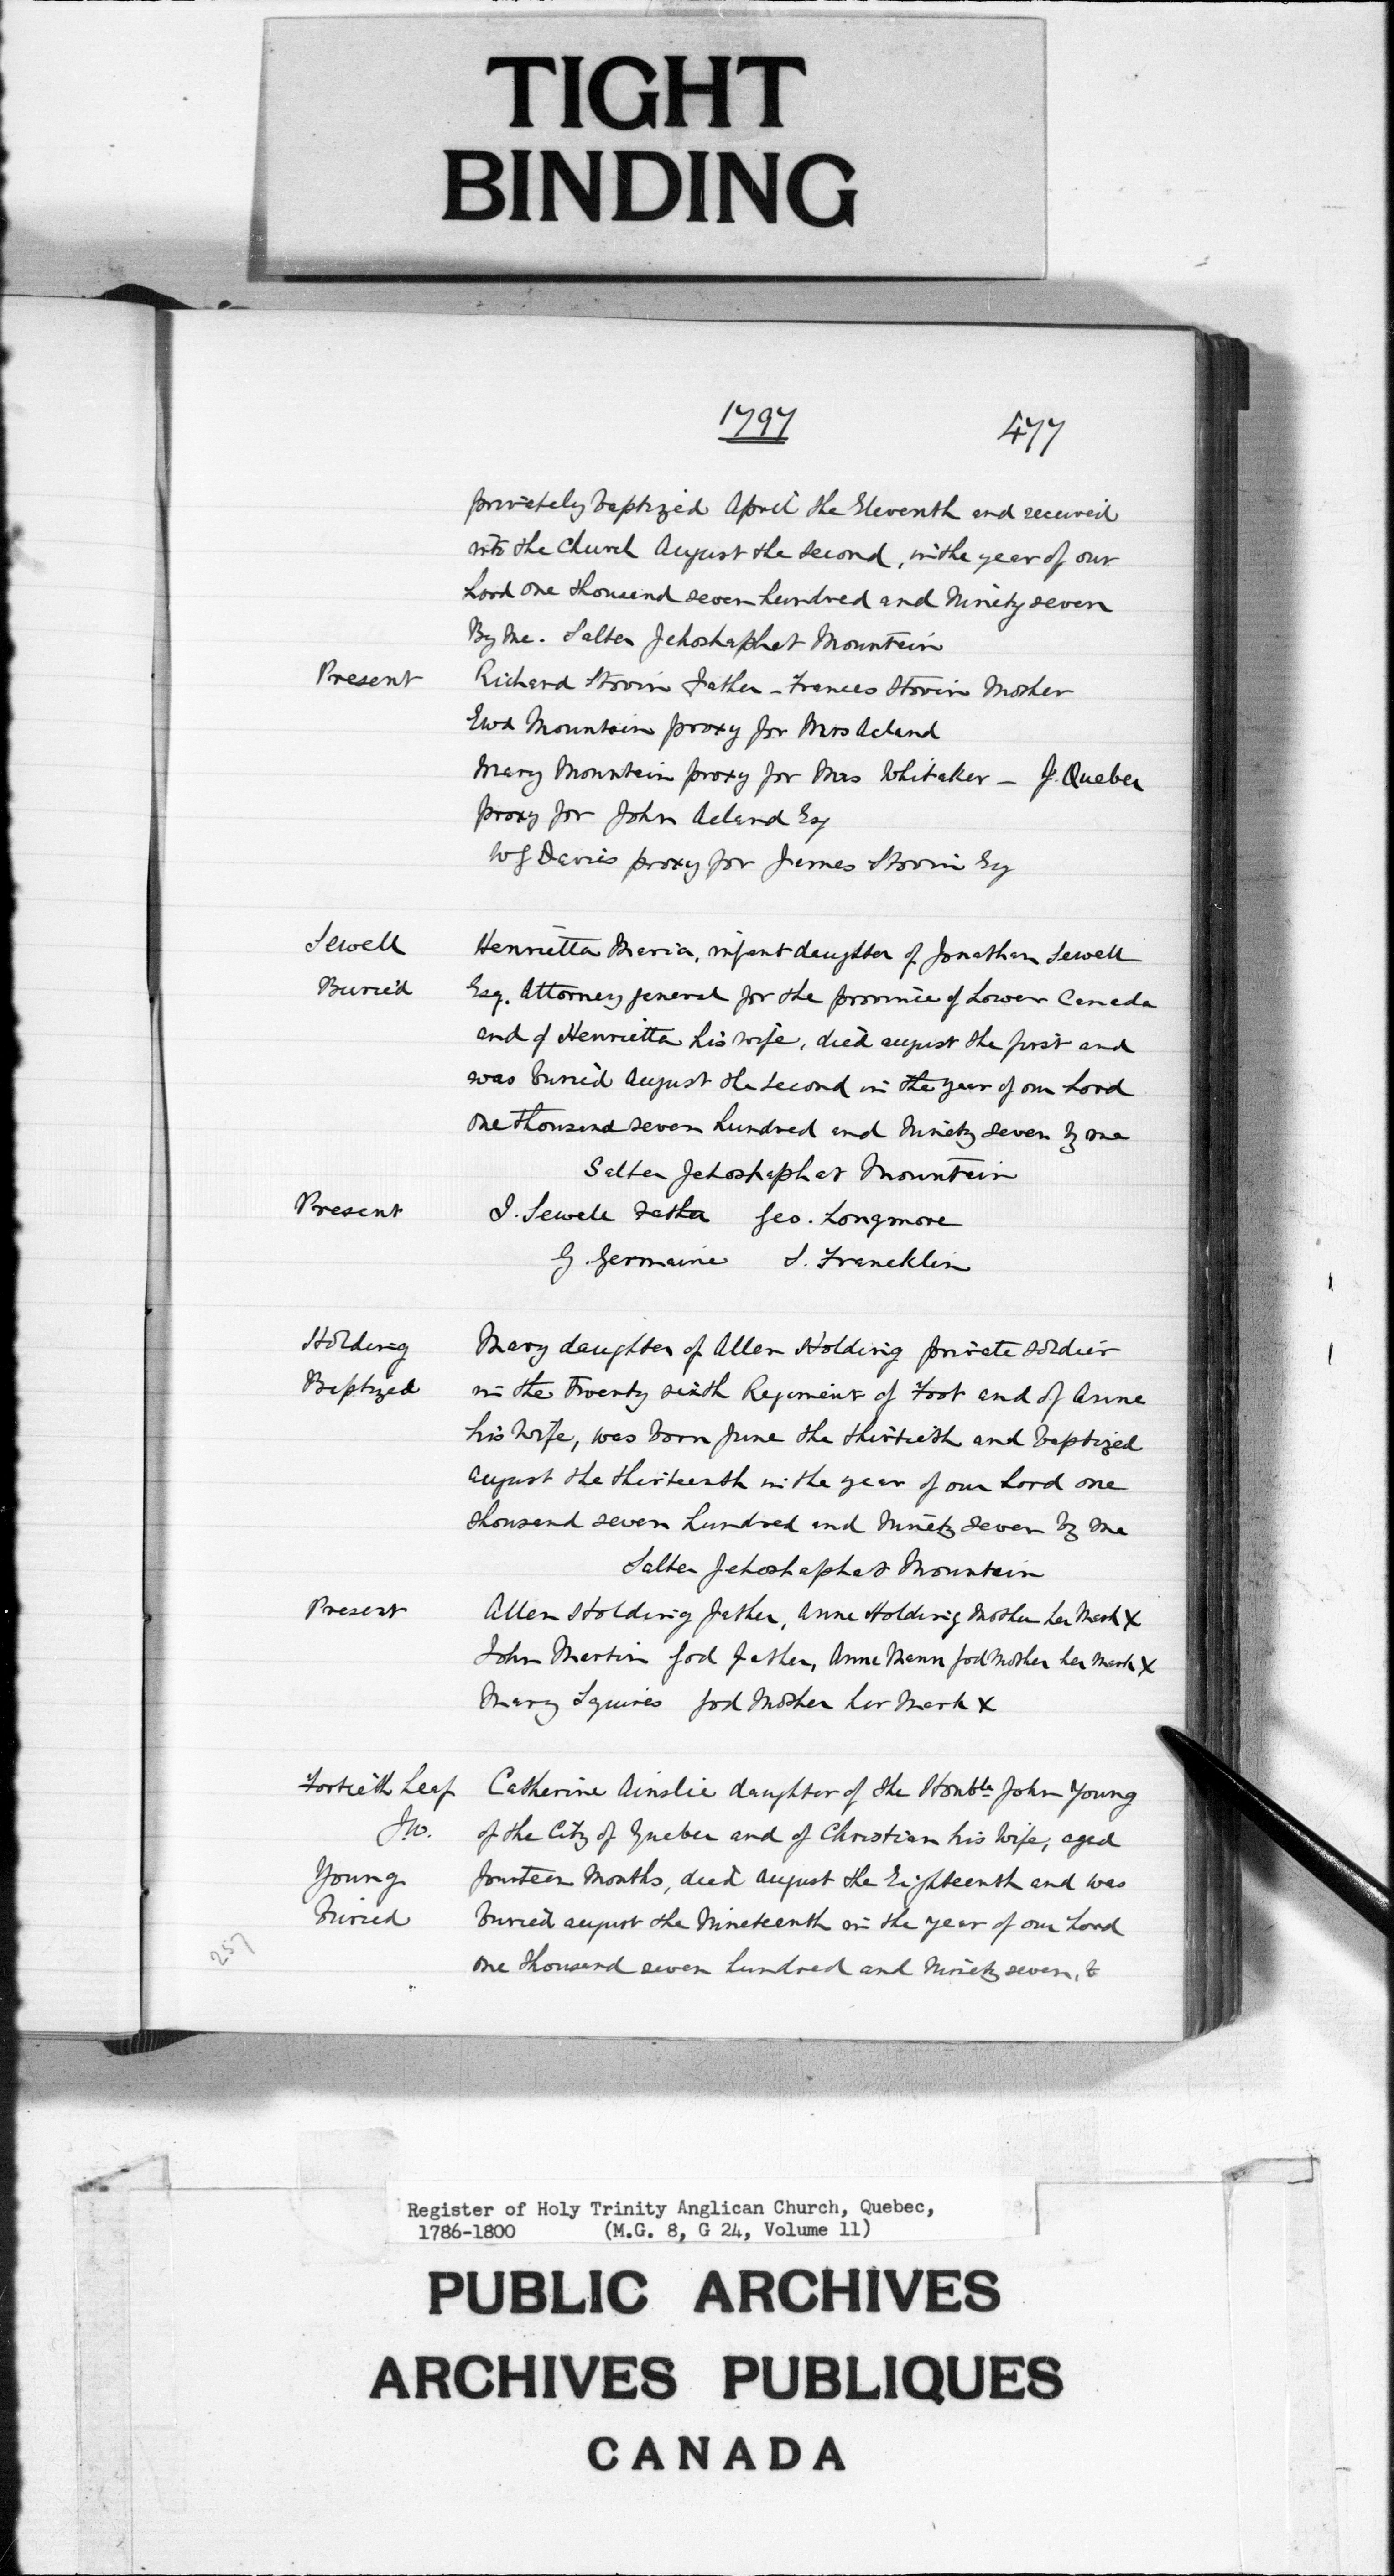 TIGHT
BINDING
1797 477
privately baptized April the Eleventh and received
into the Church August the second, in the year of our
Lord one thousand seven hundred and Ninety seven
By Me. Salter Jehoshaphat Mountain
Present Richard Stovin Father - Frances Stovin Mother
Mountain proxy for Mrs Acland
Mary Mountain proxy for Mrs Whitaker - J. Quebec
proxy for John Acland Esq
Davis proxy for James Stovin Esq
Sewell Henrietta Maria, infant daughter of Jonathan Sewell
Buried Esq. Attorney general for the province of Lower Canada
and of Henrietta his wife, died august the first and
was buried August the second in the year of our Lord
one thousand seven hundred and Ninety seven by me
Salter Jehoshaphat Mountain
Present J. Sewell Father Geo. Longmore
G. Germaine J. Francklin
Holding Mary daughter of Allen Holding private soldier
Baptized in the Twenty sixth Regiment of Foot and of Anne
his Wife, was born June the thirtieth and baptized
august the thirteenth in the year of our Lord one
thousand seven hundred and Ninety seven by me
Salter Jehoshaphat Mountain
Present Allen Holding father, Anne Holding Mother her Mark X
John Martin God father, Anne Mann God Mother her Mark X
Mary Squires God Mother her Mark X
Fortieth Leaf Catherine Ainslie daughter of the Honble John Young
J.W. of the City of Quebec and of Christian his Wife, aged
Young fourteen Months, died august the Eighteenth and was
Buried buried august the Nineteenth in the year of our Lord
257 one thousand seven hundred and Ninety seven, &
Register of Holy Trinity Anglican Church, Quebec,
1786-1800 (M.G. 8, G 24, Volume 11)
PUBLIC ARCHIVES
ARCHIVES PUBLIQUES
CANADA